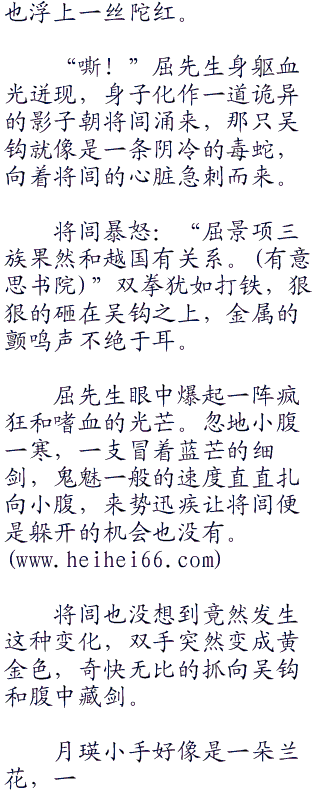 也浮上一丝陀红。
“嘶！”屈先生身躯血
光迸现，身子化作一道诡异
的影子朝将闾涌来，那只吴
钩就像是一条阴冷的毒蛇，
向着将闾的心脏急刺而来。
将闾暴怒：“屈景项三
族果然和越国有关系。(有意
思书院)”双拳犹如打铁，狠
狠的砸在吴钩之上，金属的
颤鸣声不绝于耳。
屈先生眼中爆起一阵疯
狂和嗜血的光芒。忽地小腹
一寒，一支冒着蓝芒的细
剑，鬼魅一般的速度直直扎
向小腹，来势迅疾让将闾便
是躲开的机会也没有。
(www.heihei66.com)
将闾也没想到竟然发生
这种变化，双手突然变成黄
金色，奇快无比的抓向吴钩
和腹中藏剑。
月瑛小手好像是一朵兰
花，一